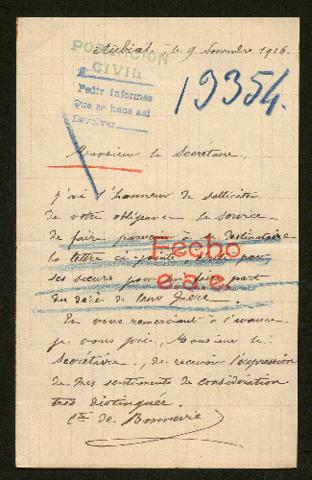 Aubiat, le 9 Novembre 1916.
POBLACIÓN
CIVIL
Pedir informes
Que se haga así
Devolver
19354.
Monsieur le Secrétaire,
J'ai l'honneur de solliciter
de votre obligeance le service
de faire parvenir à sa destinataire
la lettre ci jointe, par
ses sœurs pour faire part
du décès de leur frère.
Hecho
e.a.e.
En vous remerciant à l'avance
je vous prie, Monsieur le
Secrétaire, de recevoir l'expression
de mes sentiments de considération
très distinguée.
Cte de Bonnevie